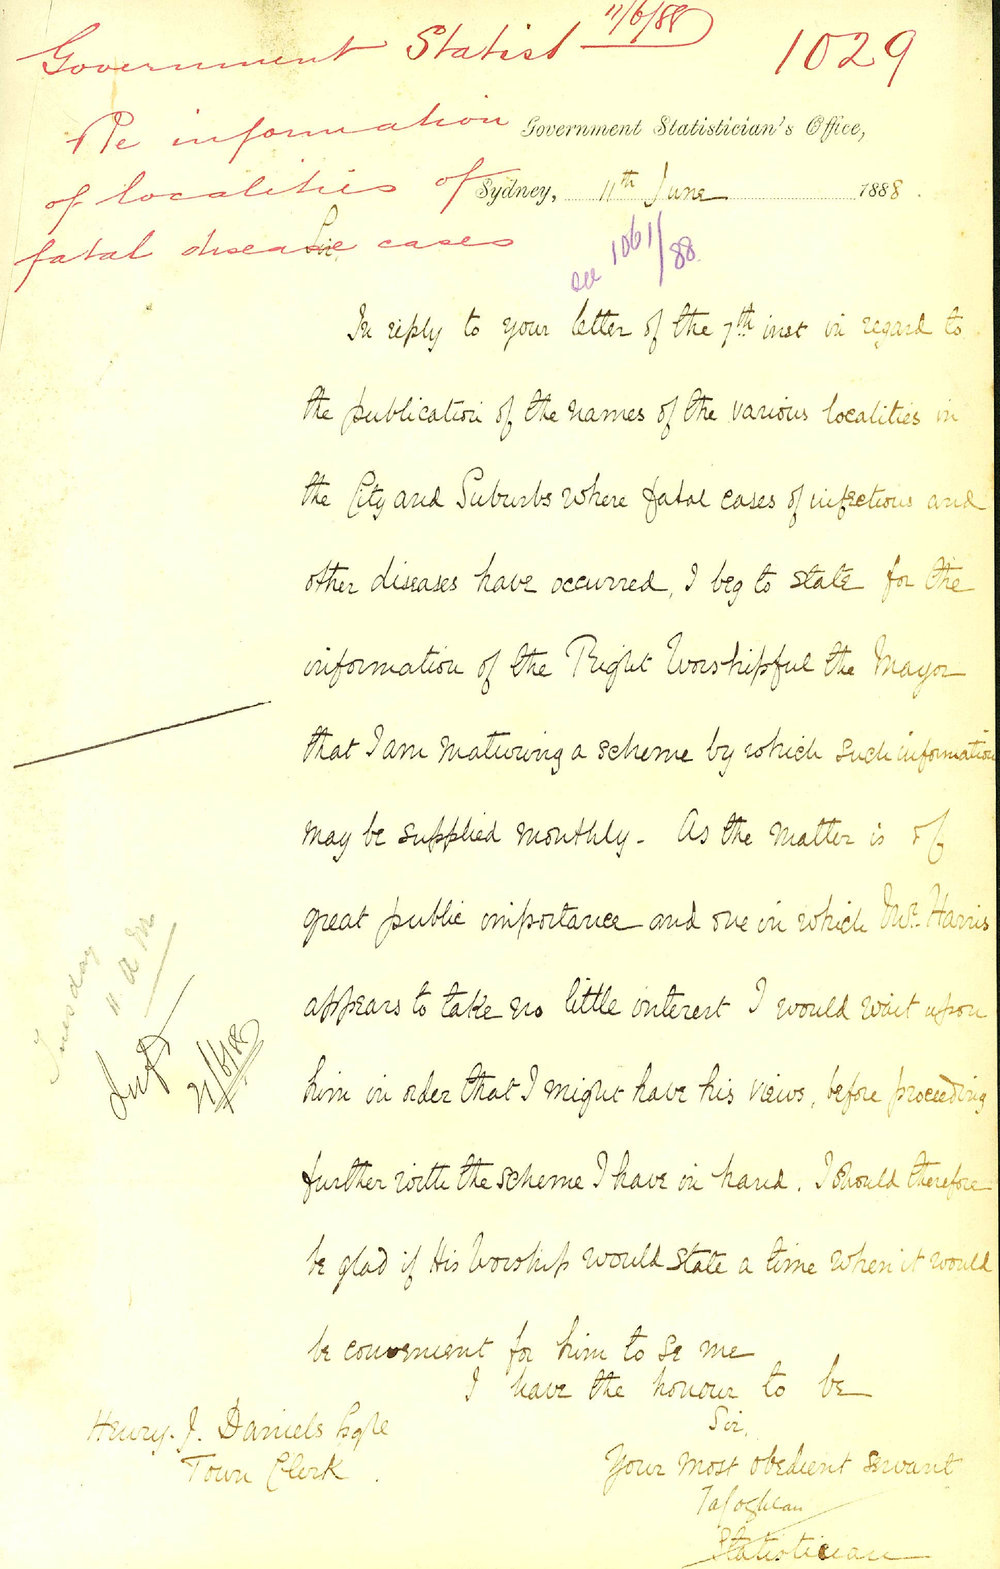 Government Statist 11/6/88
1029
Re information
of localities of
fatal disease cases
Government Statistician's Office,
Sydney, 11th June 1888.
see 1061/88
Sir
In reply to your letter of the 7th inst in regard to
the publication of the names of the various localities in
the City and Suburbs where fatal cases of infectious and
other diseases have occurred, I beg to state for the
information of the Right Worshipful the Mayor
that I am maturing a scheme by which such information
may be supplied monthly. As the matter is of
great public importance and one in which Mr. Harris
appears to take no little interest I would wait upon
him in order that I might have his views, before proceeding
further with the scheme I have in hand. I should therefore
be glad if His Worship would state a time when it would
be convenient for him to se me
I have the honour to be
Sir,
Your most obedient servant
TaCoghlan
Statistician
Henry. J. Daniels Esqre
Town Clerk.
Tuesday
11 a m